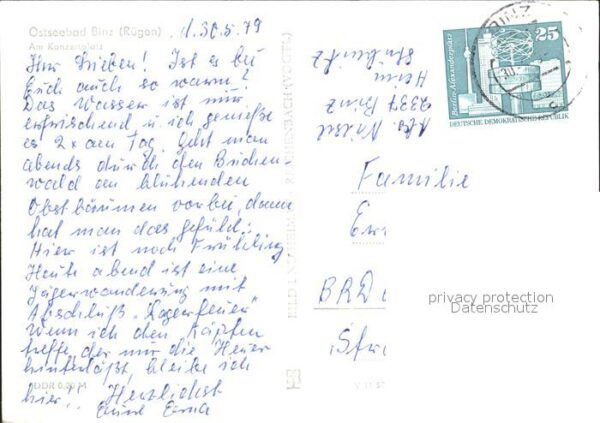 Ostseebad Binz (Rügen)
Am Konzertplatz
d. 30.5.79
Ihr Lieben! Ist es bei
Euch auch so warm?
Das Wasser ist nur
erfrischend u. ich genieße
es 2x am Tag. Geht man
abends durch den Buchen
wald an blühenden
Obstbäumen vorbei, dann
hat man das Gefühl:
Hier ist noch Frühling
Heute abend ist eine
Jägerwanderung mit
Abschluß "Lagerfeuer"
Wenn ich den
treffe, der mir die Heuer
hinterläßt, bleibe ich
hier! Herzlichst
Eure Erna
DDR 0,20 M
BILD
REICHENBACH (VOGTL)
V 11 50
Heim
2337 Binz
BINZ
25
Berlin, Alexanderplatz
DEUTSCHE DEMOKRATISCHE REPUBLIK
Familie
BRD
privacy protection
Datenschutz